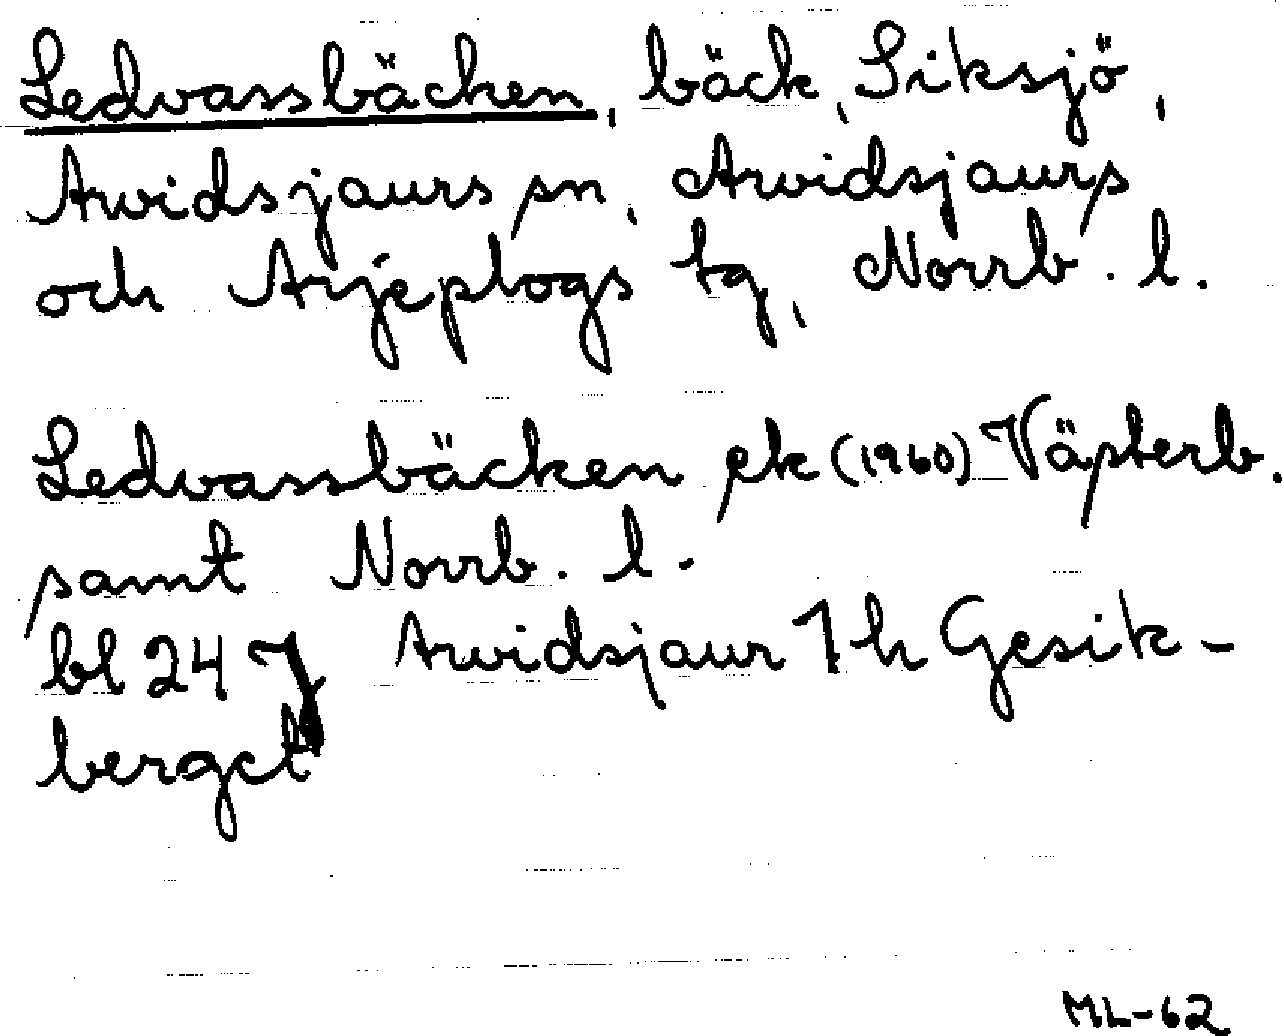 Ledvassbäcken, bäck, Siksjö,
Arvidsjaurs sn, Arvidsjaurs
och Arjeplogs tg, Norrb. l.
Ledvassbäcken ek (1960) Västerb.
samt Norrb. l.
bl 24 J Arvidsjaur 1 h Gesik-
berget
ML-62